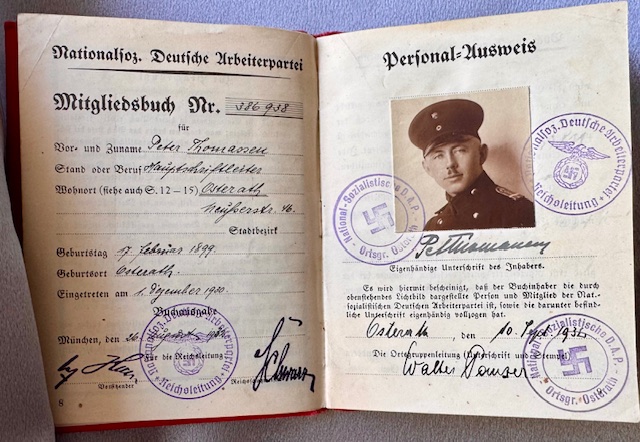 Nationalsoz. Deutsche Arbeiterpartei
Mitgliedsbuch Nr. 386938
für
Vor- und Zuname Peter Thomassen
Stand oder Beruf Hauptschriftleiter
Wohnort (siehe auch S. 12–15) Osterath
Neußerstr. 46.
Stadtbezirk
Geburtstag 7. Februar 1899.
Geburtsort Osterath.
Eingetreten am 1. Dezember 1930.
Buchausgabe
München, den 26.
Für die Reichsleitung
Vorsitzender
8
Personal-Ausweis
Nationalsoz. Deutsche Arbeiterpartei
Reichsleitung
National-Sozialistische D.A.P.
Ortsgr. Osterath
Eigenhändige Unterschrift des Inhabers.
Es wird hiermit bescheinigt, daß der Buchinhaber die durch
obenstehendes Lichtbild dargestellte Person und Mitglied der Nat.-
sozialistischen Deutschen Arbeiterpartei ist, sowie die darunter befind-
liche Unterschrift eigenhändig vollzogen hat.
Osterath, den 10. Sept. 193
Die Ortsgruppenleitung (Unterschrift und Stempel)
Walter
National-Sozialistische D.A.P.
Ortsgr. Osterath